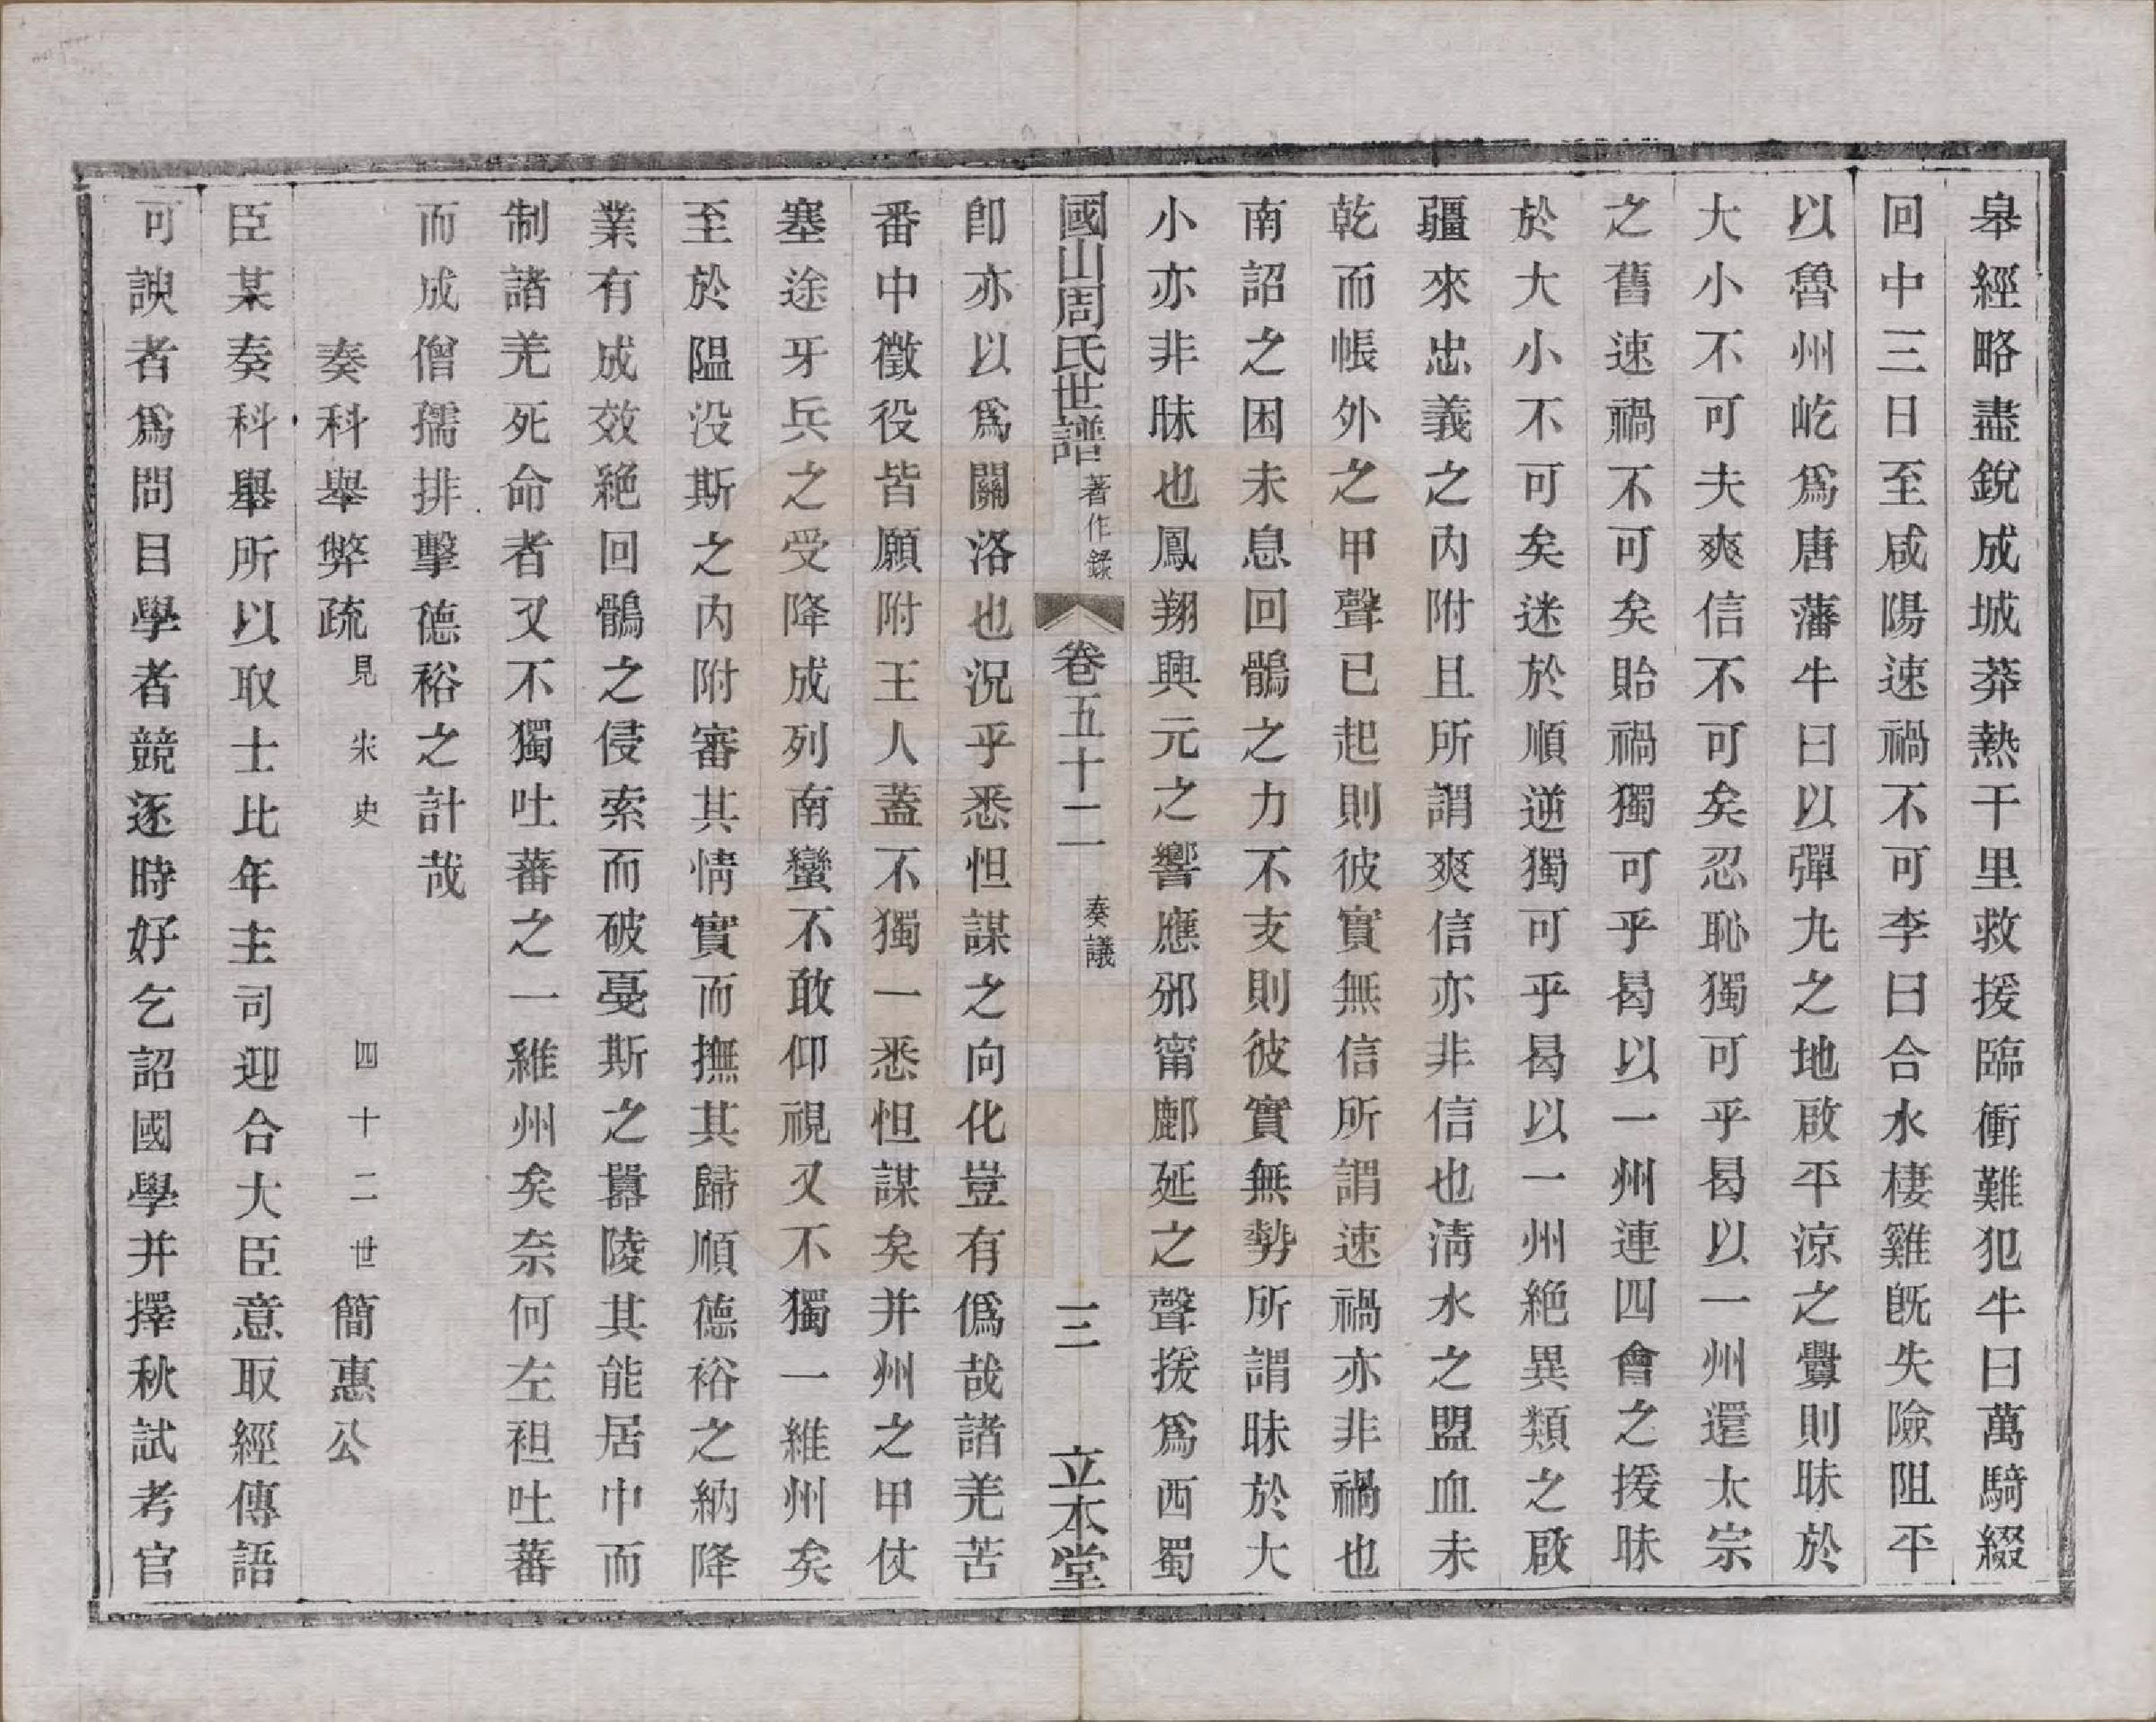 皋經略盡銳成城莽熱千里救援臨衝難犯牛曰萬騎綴
回中三日至咸陽速禍不可李曰合水棲雞旣失險阻平
以魯州屹爲唐藩牛曰以彈丸之地啟平涼之釁則昧於
大小不可夫爽信不可矣忍恥獨可乎曷以一州還太宗
之舊速禍不可矣貽禍獨可乎曷以一州連四會之援昧
於大小不可矣迷於順逆獨可乎曷以一州絕異類之啟
疆來忠義之內附且所謂爽信亦非信也淸水之盟血未
乾而帳外之甲聲已起則彼實無信所謂速禍亦非禍也
南詔之困未息回鶻之力不支則彼實無勢所謂昧於大
小亦非昧也鳳翔興元之響應邠甯鄜延之聲援爲西蜀
國山周氏世譜 著作錄 卷五十二 奏議 三 立本堂
卽亦以爲關洛也況乎悉怛謀之向化豈有僞哉諸羌苦
番中徵役皆願附王人蓋不獨一悉怛謀矣并州之甲仗
塞途牙兵之受降成列南蠻不敢仰視又不獨一維州矣
至於隘沒斯之內附審其情實而撫其歸順德裕之納降
業有成效絕回鶻之侵索而破戛斯之囂陵其能居中而
制諸羌死命者又不獨吐蕃之一維州矣奈何左袒吐蕃
而成僧孺排擊德裕之計哉
奏科舉弊疏 見宋史 四十二世簡惠公
臣某奏科舉所以取士比年主司迎合大臣意取經傳語
可諛者爲問目學者競逐時好乞詔國學并擇秋試考官